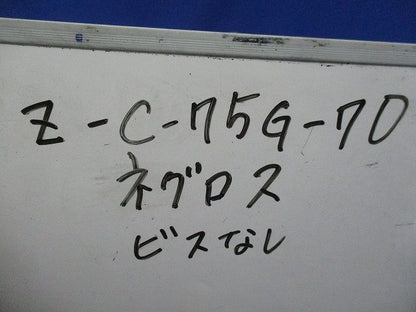 Z-C-75G-70
ネグロス
ビスなし